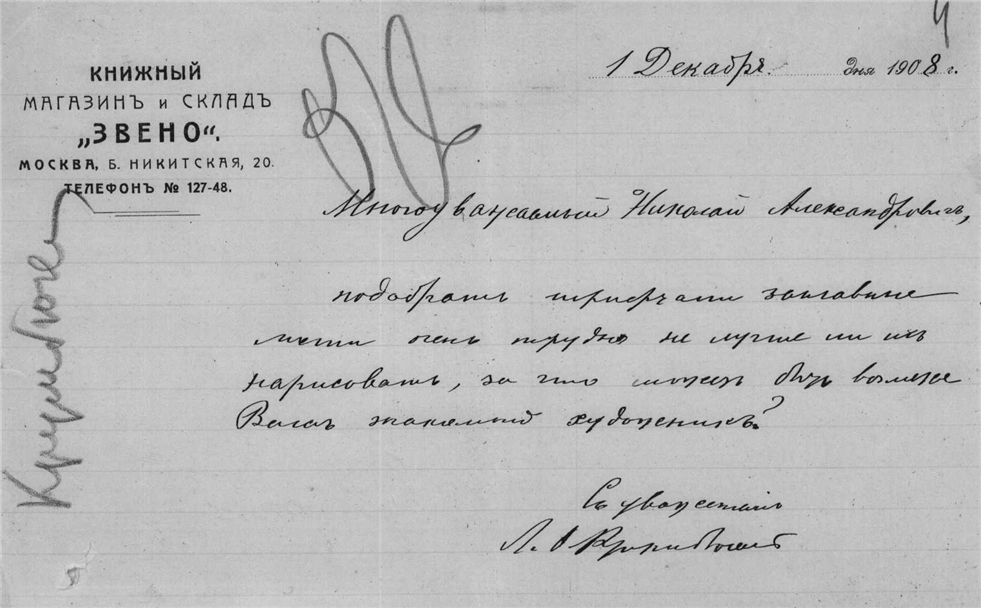 4
КНИЖНЫЙ
МАГАЗИНЪ и СКЛАДЪ
„ЗВЕНО“.
МОСКВА, Б. НИКИТСКАЯ, 20.
ТЕЛЕФОНЪ № 127-48.
1 Декабря. дня 1908 г.
Многоуважаемый Николай Александровичъ,
подобрать шрифтами заглавные
очень трудно не лучше ли ихъ
нарисовать, за что можетъ быть
Вашъ знакомый художникъ?
Съ уваженіемъ
Л. О